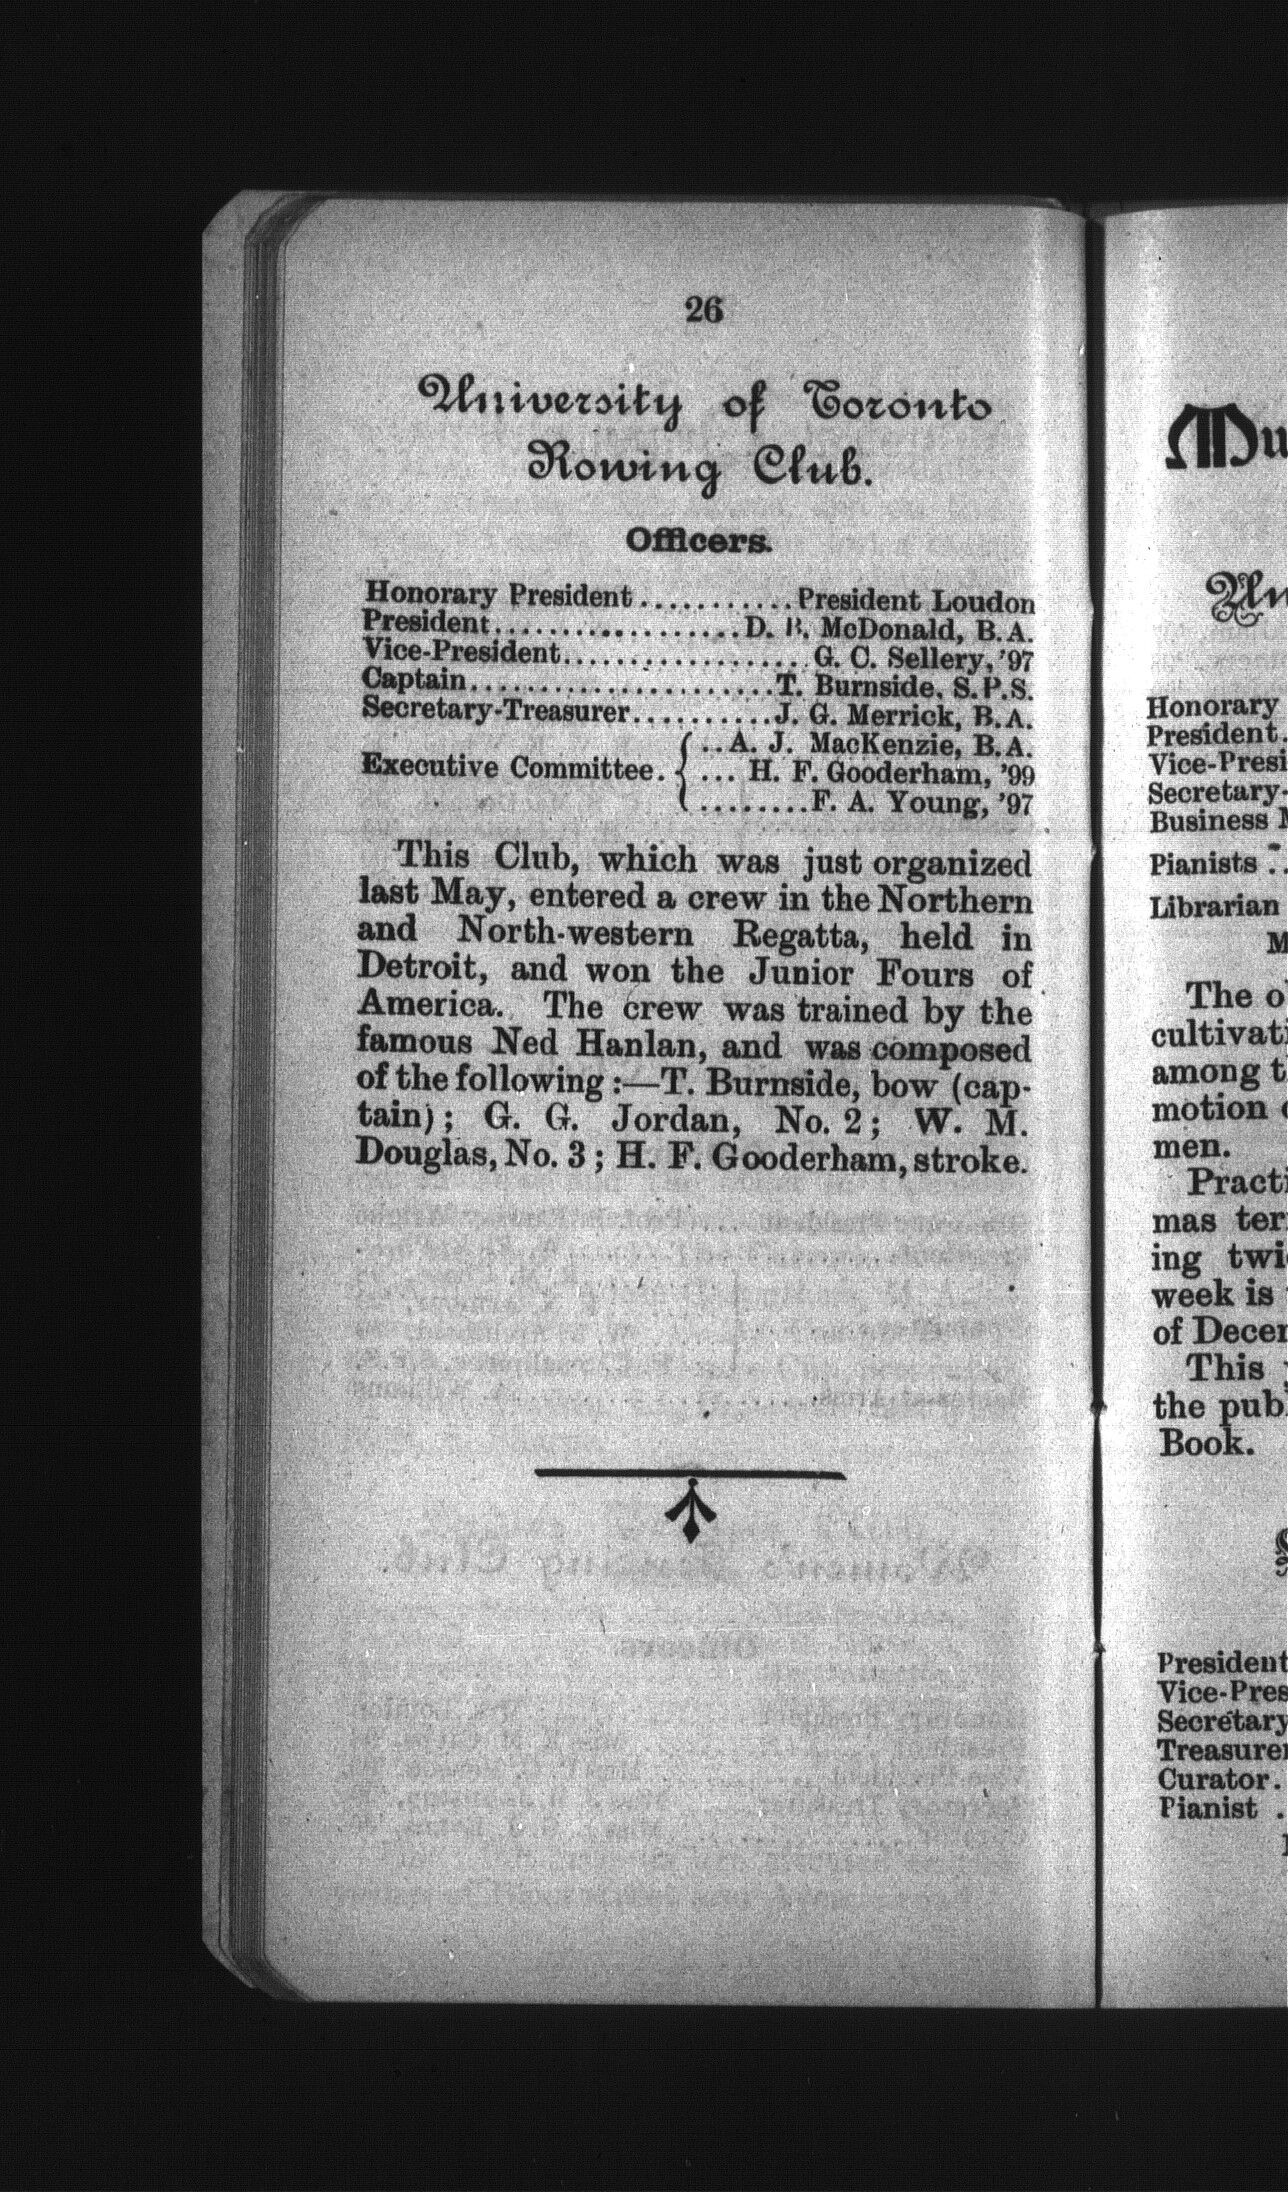 26
University of Toronto
Rowing Club.
Officers.
Honorary President...........President Loudon
President..................D. B. McDonald, B.A.
Vice-President..................G. C. Sellery, '97
Captain......................T. Burnside, S.P.S.
Secretary-Treasurer..........J. G. Merrick, B.A.
..A. J. MacKenzie, B.A.
Executive Committee. { ... H. F. Gooderham, '99
........F. A. Young, '97
This Club, which was just organized
last May, entered a crew in the Northern
and North-western Regatta, held in
Detroit, and won the Junior Fours of
America. The crew was trained by the
famous Ned Hanlan, and was composed
of the following :—T. Burnside, bow (cap-
tain) ; G. G. Jordan, No. 2 ; W. M.
Douglas, No. 3 ; H. F. Gooderham, stroke.
Mu
Un
Honorary
President.
Vice-Presi
Secretary-
Business M
Pianists ..
Librarian
M
The o
cultivati
among t
motion
men.
Practi
mas ter
ing twi
week is
of Decem
This
the publ
Book.
President
Vice-Pres
Secretary
Treasurer
Curator.
Pianist .